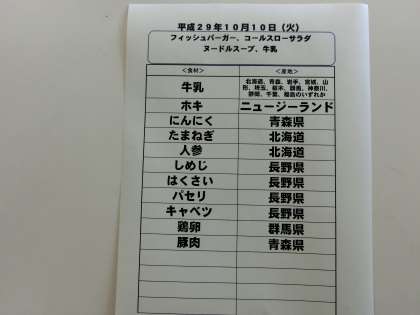 平成29年10月10日（火）
フィッシュバーガー、コールスローサラダ
ヌードルスープ、牛乳
＜食材＞ ＜産地＞
牛乳 北海道、青森、岩手、宮城、山
形、埼玉、栃木、群馬、神奈川、
静岡、千葉、福島のいずれか
ホキ ニュージーランド
にんにく 青森県
たまねぎ 北海道
人参 北海道
しめじ 長野県
はくさい 長野県
パセリ 長野県
キャベツ 長野県
鶏卵 群馬県
豚肉 青森県